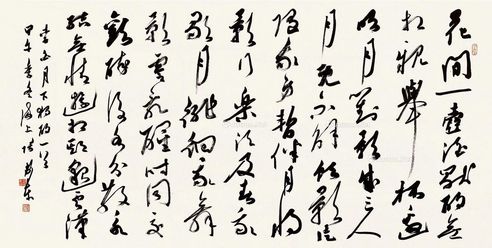 花間一壺酒獨酌無
相親舉杯邀
明月對影成三人
月既不解飲影徒
隨我身暫伴月將
影行樂須及春我
歌月徘徊我舞
影零亂醒時同交
歡醉後各分散永
結無情遊相期邈雲漢
李白月下獨酌一首
甲午海上